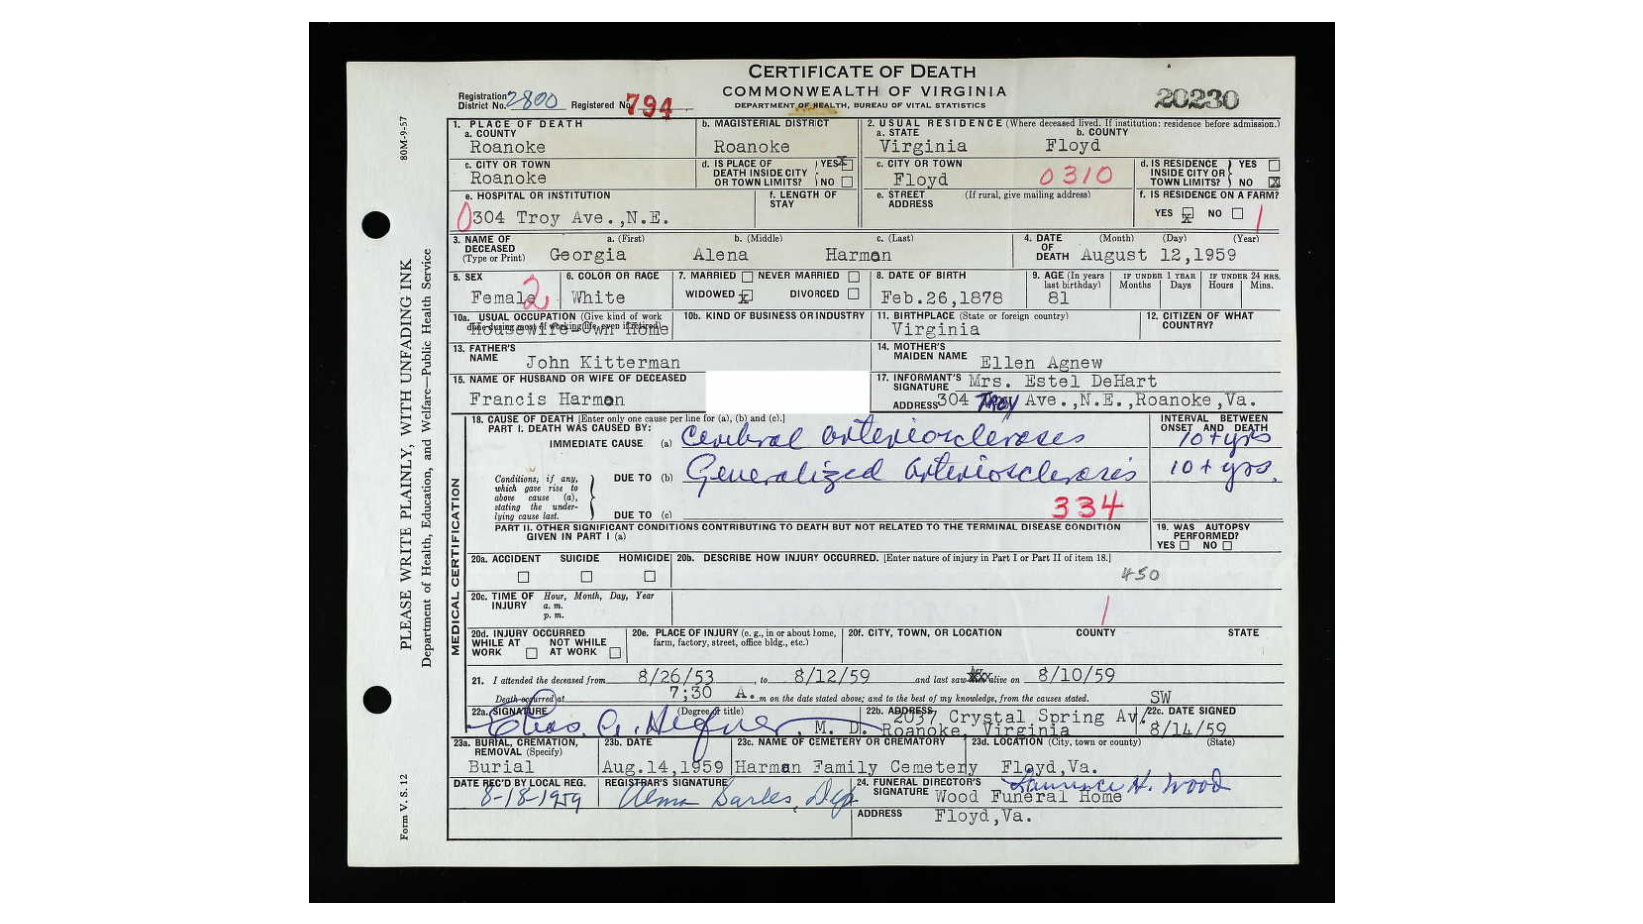 CERTIFICATE OF DEATH
COMMONWEALTH OF VIRGINIA
DEPARTMENT OF HEALTH, BUREAU OF VITAL STATISTICS
Registration District No. 2800 Registered No. 794
20230
80M-9-57
PLEASE WRITE PLAINLY, WITH UNFADING INK
Department of Health, Education, and Welfare—Public Health Service
Form V. S. 12
1. PLACE OF DEATH
a. COUNTY
Roanoke
b. MAGISTERIAL DISTRICT
Roanoke
2. USUAL RESIDENCE (Where deceased lived. If institution: residence before admission.)
a. STATE
Virginia
b. COUNTY
Floyd
c. CITY OR TOWN
Roanoke
d. IS PLACE OF DEATH INSIDE CITY OR TOWN LIMITS? YES X NO
c. CITY OR TOWN
Floyd
0310
d. IS RESIDENCE INSIDE CITY OR TOWN LIMITS? YES NO X
e. HOSPITAL OR INSTITUTION
0 304 Troy Ave.,N.E.
f. LENGTH OF STAY
e. STREET ADDRESS (If rural, give mailing address)
f. IS RESIDENCE ON A FARM?
YES X NO 1
3. NAME OF DECEASED (Type or Print)
a. (First) b. (Middle) c. (Last)
Georgia Alena Harman
4. DATE OF DEATH (Month) (Day) (Year)
August 12,1959
5. SEX
Female 2
6. COLOR OR RACE
White
7. MARRIED NEVER MARRIED
WIDOWED X DIVORCED
8. DATE OF BIRTH
Feb.26,1878
9. AGE (In years last birthday)
81
IF UNDER 1 YEAR Months Days
IF UNDER 24 HRS. Hours Mins.
10a. USUAL OCCUPATION (Give kind of work done during most of working life, even if retired)
Housewife-Own Home
10b. KIND OF BUSINESS OR INDUSTRY
11. BIRTHPLACE (State or foreign country)
Virginia
12. CITIZEN OF WHAT COUNTRY?
13. FATHER'S NAME
John Kitterman
14. MOTHER'S MAIDEN NAME
Ellen Agnew
15. NAME OF HUSBAND OR WIFE OF DECEASED
Francis Harman
17. INFORMANT'S SIGNATURE Mrs. Estel DeHart
ADDRESS 304 TROY Ave.,N.E.,Roanoke,Va.
MEDICAL CERTIFICATION
18. CAUSE OF DEATH [Enter only one cause per line for (a), (b) and (c).]
PART I. DEATH WAS CAUSED BY:
INTERVAL BETWEEN ONSET AND DEATH
IMMEDIATE CAUSE (a) Cerebral arteriosclerosis 10+yrs
Conditions, if any, which gave rise to above cause (a), stating the underlying cause last.
DUE TO (b) Generalized arteriosclerosis 10+ yrs.
DUE TO (c)
334
PART II. OTHER SIGNIFICANT CONDITIONS CONTRIBUTING TO DEATH BUT NOT RELATED TO THE TERMINAL DISEASE CONDITION GIVEN IN PART I (a)
19. WAS AUTOPSY PERFORMED?
YES NO
20a. ACCIDENT SUICIDE HOMICIDE
20b. DESCRIBE HOW INJURY OCCURRED. [Enter nature of injury in Part I or Part II of item 18.]
450
20c. TIME OF INJURY Hour, Month, Day, Year
a. m.
p. m.
1
20d. INJURY OCCURRED
WHILE AT WORK NOT WHILE AT WORK
20e. PLACE OF INJURY (e. g., in or about home, farm, factory, street, office bldg., etc.)
20f. CITY, TOWN, OR LOCATION COUNTY STATE
21. I attended the deceased from 8/26/53 to 8/12/59 and last saw alive on 8/10/59
Death occurred at 7;30 A.m on the date stated above; and to the best of my knowledge, from the causes stated.
22a. SIGNATURE (Degree or title)
Chas. , M. D.
22b. ADDRESS 2037 Crystal Spring Av. SW
Roanoke, Virginia
22c. DATE SIGNED
8/14/59
23a. BURIAL, CREMATION, REMOVAL (Specify)
Burial
23b. DATE
Aug.14,1959
23c. NAME OF CEMETERY OR CREMATORY
Harman Family Cemetery
23d. LOCATION (City, town or county) (State)
Floyd,Va.
DATE REC'D BY LOCAL REG.
8-18-1959
REGISTRAR'S SIGNATURE
Alma Sarles, Dep
24. FUNERAL DIRECTOR'S SIGNATURE Laurence H. Wood
Wood Funeral Home
ADDRESS Floyd,Va.